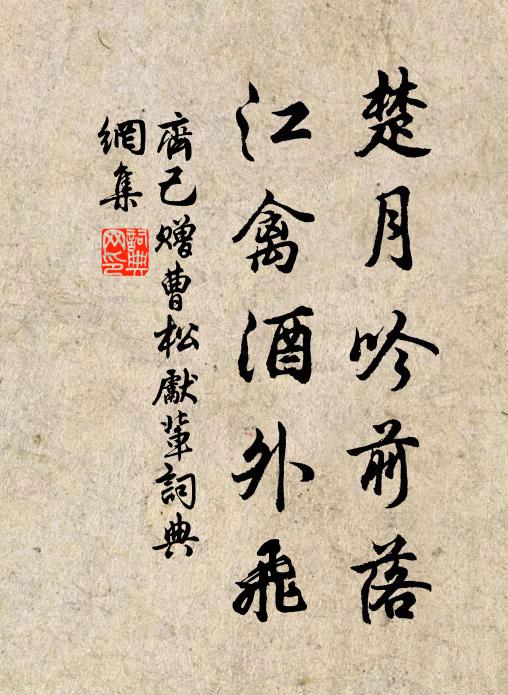 楚月吟前落
江禽酒外飛
齊己贈曹松獻輩詞典
網集
詞典
网印